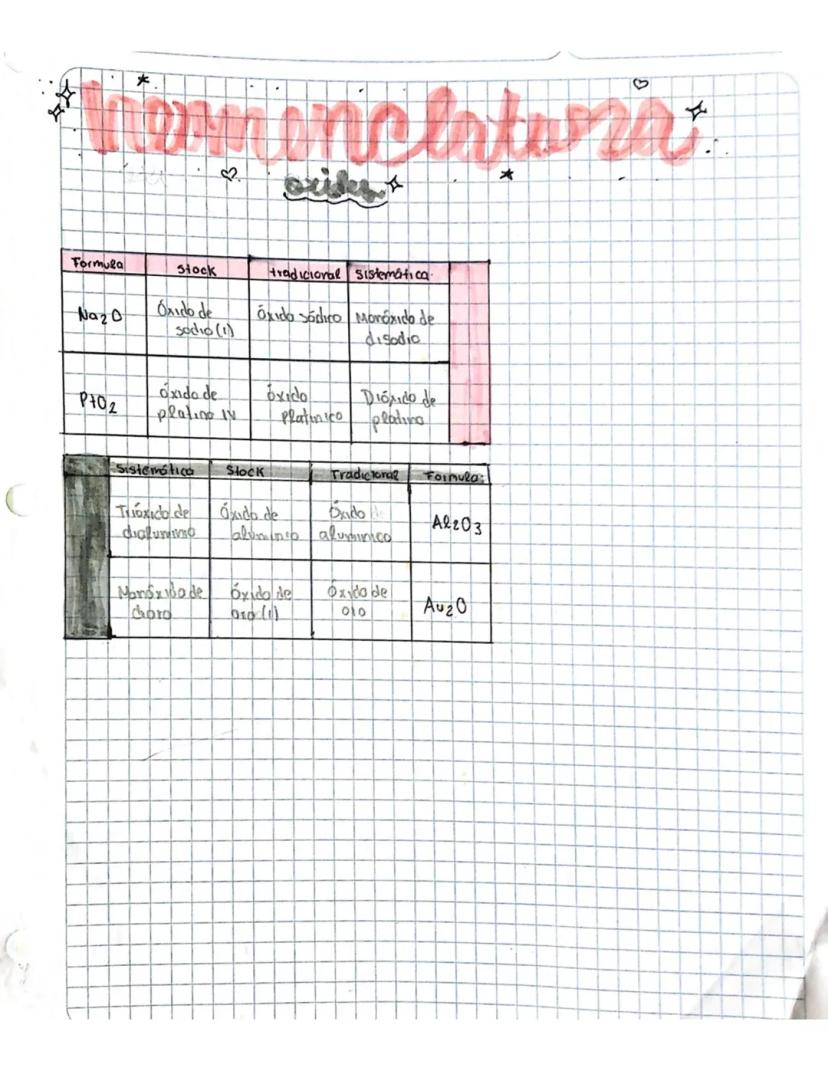 nomenclatura
oxidos
Formula Stock tradicional Sistemática.
Na2O Óxido de sodio (1) Óxido sódico Monóxido de disodio
PtO2 óxido de platino IV óxido platinico Dióxido de platino
Sistemática Stock Tradicional Formula:
Trióxido de dialuminio Óxido de aluminio Óxido aluminico Al2O3
Monóxido de óxido de oro (1) Óxido de oro Au2O